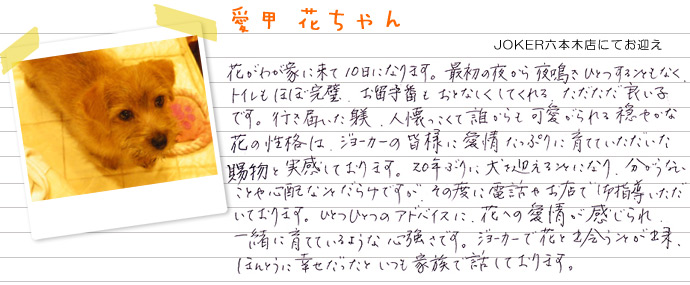 愛甲 花ちゃん
JOKER六本木店にてお迎え
花がわが家に来て10日になります。最初の夜から夜鳴きひとつすることもなく、
トイレもほぼ完璧、お留守番もおとなしくしてくれる、ただただ良い子
です。行き届いた躾、人懐っこくて誰からも可愛がられる穏やかな
花の性格は、ジョーカーの皆様に愛情たっぷりに育てていただいた
賜物と実感しております。20年ぶりに犬を迎えることになり、分からない
ことや心配なことだらけですが、その度に電話やお店で御指導いただ
いております。ひとつひとつのアドバイスに、花への愛情が感じられ、
一緒に育てているような心強さです。ジョーカーで花と出会うことが出来、
ほんとうに幸せだったといつも家族で話しております。